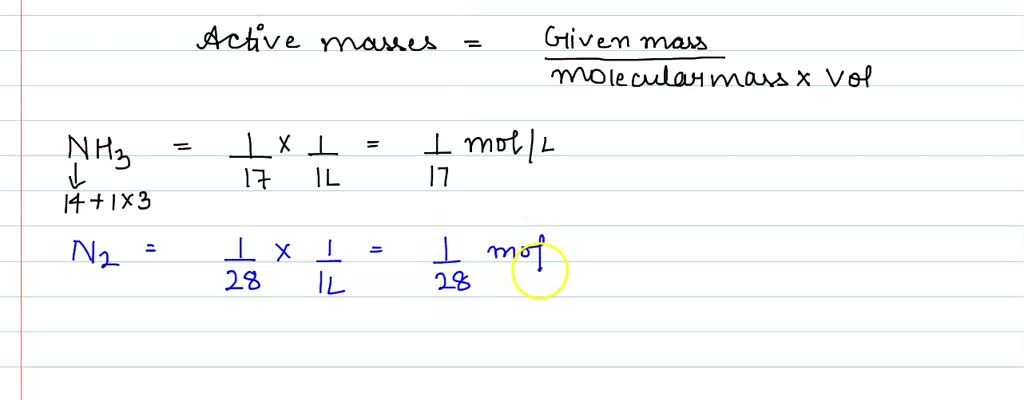 Active masses = Given mass / molecular mass x Vol
NH3 = 1/17 x 1/1L = 1/17 mol/L
↓
14+1x3
N2 = 1/28 x 1/1L = 1/28 mol